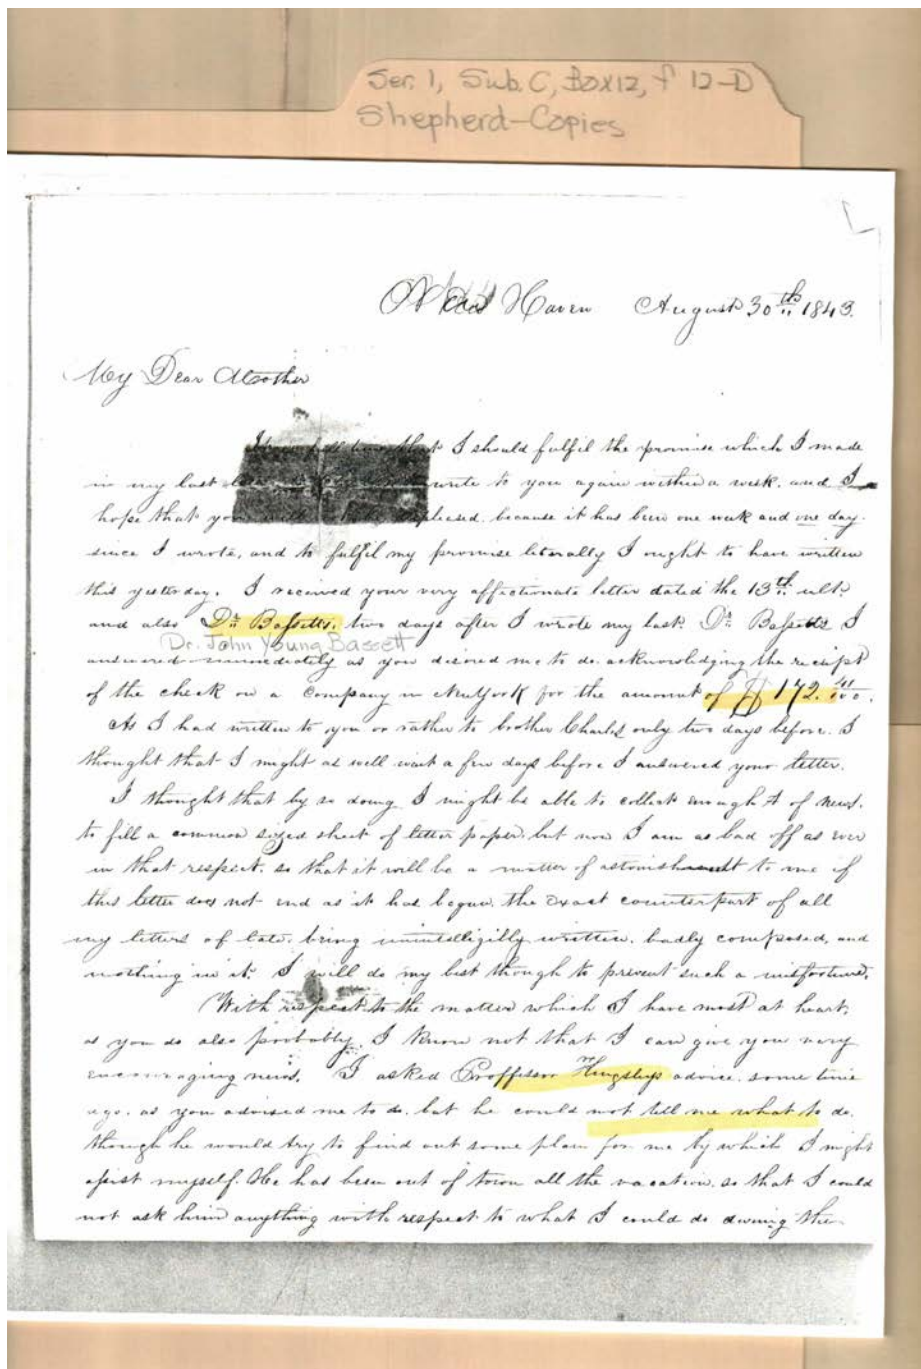 Ser. 1, Sub. C, Box 12, f 12-D
Shepherd-Copies
New Haven August 30th 1843.
My Dear Mother
that I should fulfil the promise which I made
in my last write to you again within a week. and I
hope that you displeased. because it has been one week and one day.
since I wrote, and to fulfil my promise literally I ought to have written
this yesterday. I received your very affectionate letter dated the 13th ult.
and also Dr. Bassetts. two days after I wrote my last. Dr. Bassetts I
Dr. John Young Bassett
answered immediately as you desired me to do. acknowledging the receipt
of the check on a company in New York for the amount of $172. 41/100.
As I had written to you or rather to brother Charles only two days before. I
thought that I might as well wait a few days before I answered your letter.
I thought that by so doing I might be able to collect enough of news.
to fill a common sized sheet of letter paper. but now I am as bad off as ever
in that respect. so that it will be a matter of astonishment to me if
this letter does not end as it has begun. the exact counterpart of all
my letters of late. being unintelligibly written. badly composed, and
nothing in it. I will do my best though to prevent such a misfortune.
With respect to the matter which I have most at heart,
as you do also probably. I know not that I can give you very
encouraging news. I asked Proffessor Kingsleys advice. some time
ago. as you advised me to do. but he could not tell me what to do.
though he would try to find out some plan for me by which I might
assist myself. He has been out of town all the vacation. so that I could
not ask him anything with respect to what I could do during the